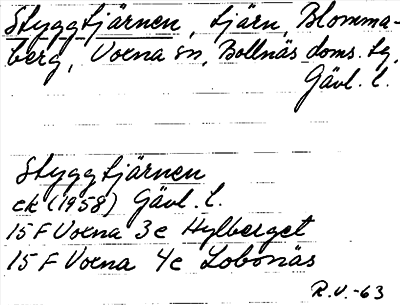 Styggtjärnen, tjärn, Blomma-
berg, Voxna sn, Bollnäs doms. tg,
Gävl. l.
Styggtjärnen
ek (1958) Gävl. l.
15 F Voxna 3e Hylberget
15 F Voxna 4e Lobonäs
R.V.-63